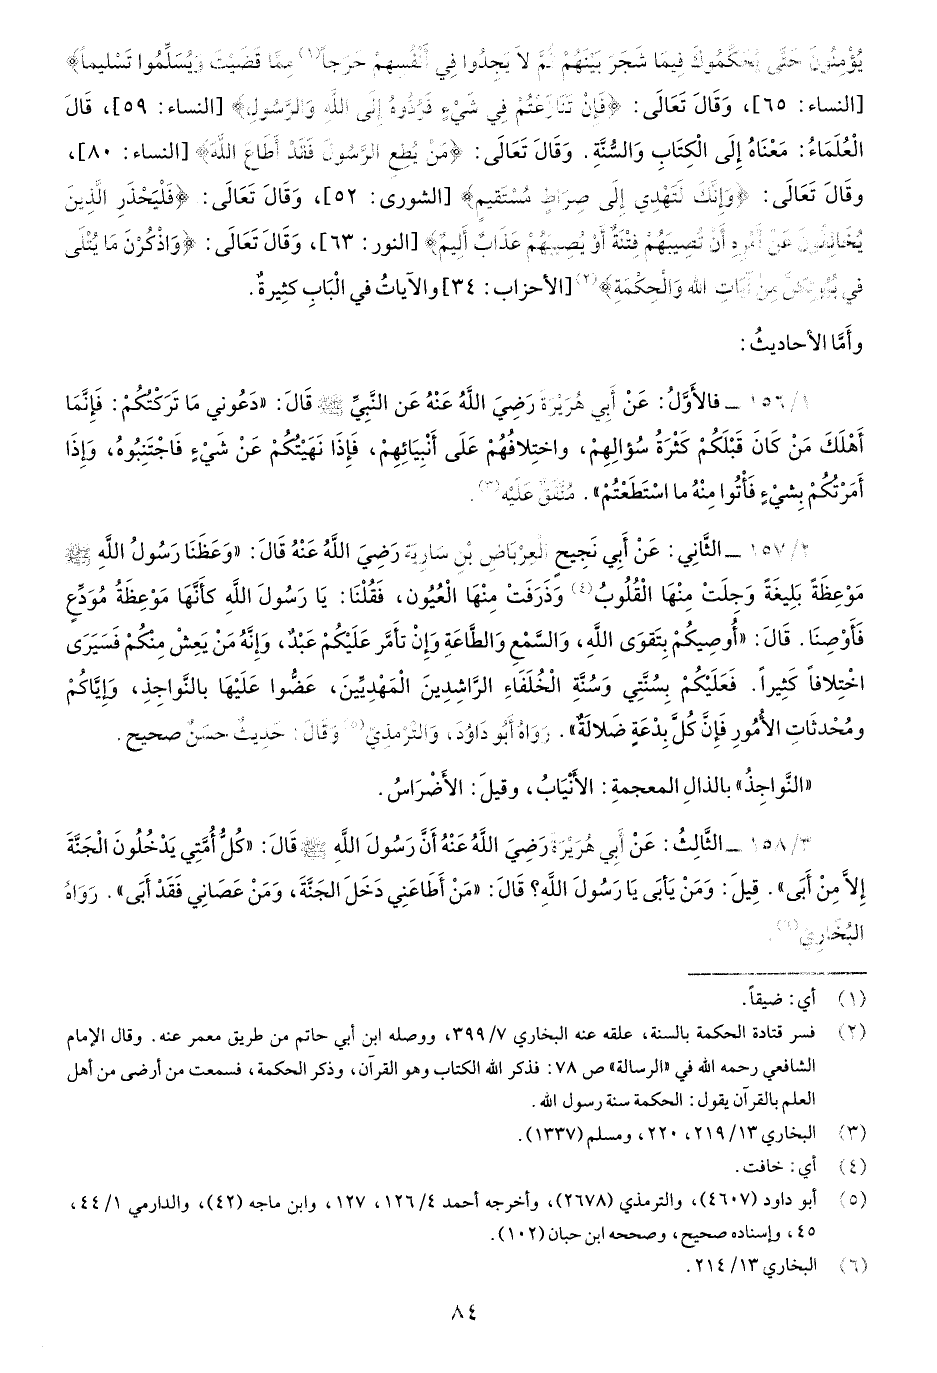 يُؤْمِنُونَ حَتَّى يُحَكِّمُوكَ فِيمَا شَجَرَ بَيْنَهُمْ ثُمَّ لاَ يَجِدُوا فِي أَنْفُسِهِمْ حَرَجاً(١) مِمَّا قَضَيْتَ وَيُسَلِّمُوا تَسْلِيماً﴾
[النساء: ٦٥]، وَقَالَ تَعَالَى: ﴿فَإِنْ تَنَازَعْتُمْ فِي شَيْءٍ فَرُدُّوهُ إِلَى اللَّهِ وَالرَّسُولِ﴾ [النساء: ٥٩]، قَالَ
الْعُلَمَاءُ: مَعْنَاهُ إِلَى الْكِتَابِ وَالسُّنَّةِ. وَقَالَ تَعَالَى: ﴿مَنْ يُطِعِ الرَّسُولَ فَقَدْ أَطَاعَ اللَّهَ﴾ [النساء: ٨٠]،
وقَالَ تَعَالَى: ﴿وَإِنَّكَ لَتَهْدِي إِلَى صِرَاطٍ مُسْتَقِيمٍ﴾ [الشورى: ٥٢]، وَقَالَ تَعَالَى: ﴿فَلْيَحْذَرِ الَّذِينَ
يُخَالِفُونَ عَنْ أَمْرِهِ أَنْ تُصِيبَهُمْ فِتْنَةٌ أَوْ يُصِيبَهُمْ عَذَابٌ أَلِيمٌ﴾ [النور: ٦٣]، وَقَالَ تَعَالَى: ﴿وَاذْكُرْنَ مَا يُتْلَى
فِي بُيُوتِكُنَّ مِنْ آيَاتِ اللهِ وَالْحِكْمَةِ﴾(٢) [الأحزاب: ٣٤] والآياتُ في الْبَابِ كثِيرةٌ.
وأَمَّا الأحاديثُ:
١٥٦/١ ـ فالأَوَّلُ: عَنْ أَبِي هُرَيْرَةَ رَضِيَ اللَّهُ عَنْهُ عَنِ النَّبِيِّ ﷺ قَالَ: «دَعُوني ما تَرَكْتُكُمْ: فَإِنَّمَا
أَهْلَكَ مَنْ كَانَ قَبْلَكُمْ كَثْرَةُ سُؤَالِهِمْ، واختِلافُهُمْ عَلَى أَنْبِيائِهِمْ، فَإِذَا نَهَيْتُكُمْ عَنْ شَيْءٍ فَاجْتَنِبُوهُ، وَإِذَا
أَمَرْتُكُمْ بِشَيْءٍ فَأْتُوا مِنْهُ ما اسْتَطَعْتُمْ». مُتَّفَقٌ عَلَيْهِ(٣).
١٥٧/٢ ـ الثَّانِي: عَنْ أَبِي نَجِيحٍ الْعِرْبَاضِ بْنِ سَارِيَةَ رَضِيَ اللَّهُ عَنْهُ قَالَ: «وَعَظَنَا رَسُولُ اللَّهِ ﷺ
مَوْعِظَةً بَلِيغَةً وَجِلَتْ مِنْهَا الْقُلُوبُ(٤) وَذَرَفَتْ مِنْهَا الْعُيُون، فَقُلْنَا: يا رَسُولَ اللَّهِ كأَنَّهَا مَوْعِظَةُ مُوَدِّعٍ
فَأَوْصِنَا. قَالَ: «أُوصِيكُمْ بِتَقوَى اللَّهِ، وَالسَّمْعِ وَالطَّاعَةِ وَإِنْ تأَمَّر عَلَيْكُمْ عَبْدٌ، وَإِنَّهُ مَنْ يَعِشْ مِنْكُمْ فَسَيَرَى
اختِلافاً كَثِيراً. فَعَلَيْكُمْ بِسُنَّتِي وَسُنَّةِ الْخُلَفَاءِ الرَّاشِدِينَ الْمَهْدِيِّينَ، عَضُّوا عَلَيْهَا بالنَّواجِذِ، وَإِيَّاكُمْ
ومُحْدثَاتِ الأُمُورِ فَإِنَّ كُلَّ بِدْعَةٍ ضَلالَةٌ». رَوَاهُ أَبُو دَاوُدَ، وَالتِّرْمِذِيّ(٥) وَقَالَ: حَدِيثٌ حَسَنٌ صحيح.
«النَّواجِذُ» بالذالِ المعجمة: الأَنْيَابُ، وقيلَ: الأَضْرَاسُ.
١٥٨/٣ ـ الثَّالِثُ: عَنْ أَبِي هُرَيْرَةَ رَضِيَ اللَّهُ عَنْهُ أَنَّ رَسُولَ اللَّهِ ﷺ قَالَ: «كُلُّ أُمَّتِي يَدْخُلُونَ الْجَنَّةَ
إلاَّ مِنْ أَبَى». قِيلَ: وَمَنْ يَأبَى يَا رَسُولَ اللَّهِ؟ قَالَ: «مَنْ أَطَاعَنِي دَخَلَ الجَنَّةَ، وَمَنْ عَصَانِي فَقَدْ أَبَى». رَوَاهُ
البُخَارِي(٦).
(١) أي: ضيقاً.
(٢) فسر قتادة الحكمة بالسنة، علقه عنه البخاري ٣٩٩/٧، ووصله ابن أبي حاتم من طريق معمر عنه. وقال الإمام
الشافعي رحمه الله في «الرسالة» ص ٧٨: فذكر الله الكتاب وهو القرآن، وذكر الحكمة، فسمعت من أرضى من أهل
العلم بالقرآن يقول: الحكمة سنة رسول الله.
(٣) البخاري ٢١٩/١٣، ٢٢٠، ومسلم (١٣٣٧).
(٤) أي: خافت.
(٥) أبو داود (٤٦٠٧)، والترمذي (٢٦٧٨)، وأخرجه أحمد ١٢٦/٤، ١٢٧، وابن ماجه (٤٢)، والدارمي ٤٤/١،
٤٥، وإسناده صحيح، وصححه ابن حبان (١٠٢).
(٦) البخاري ٢١٤/١٣.
٨٤